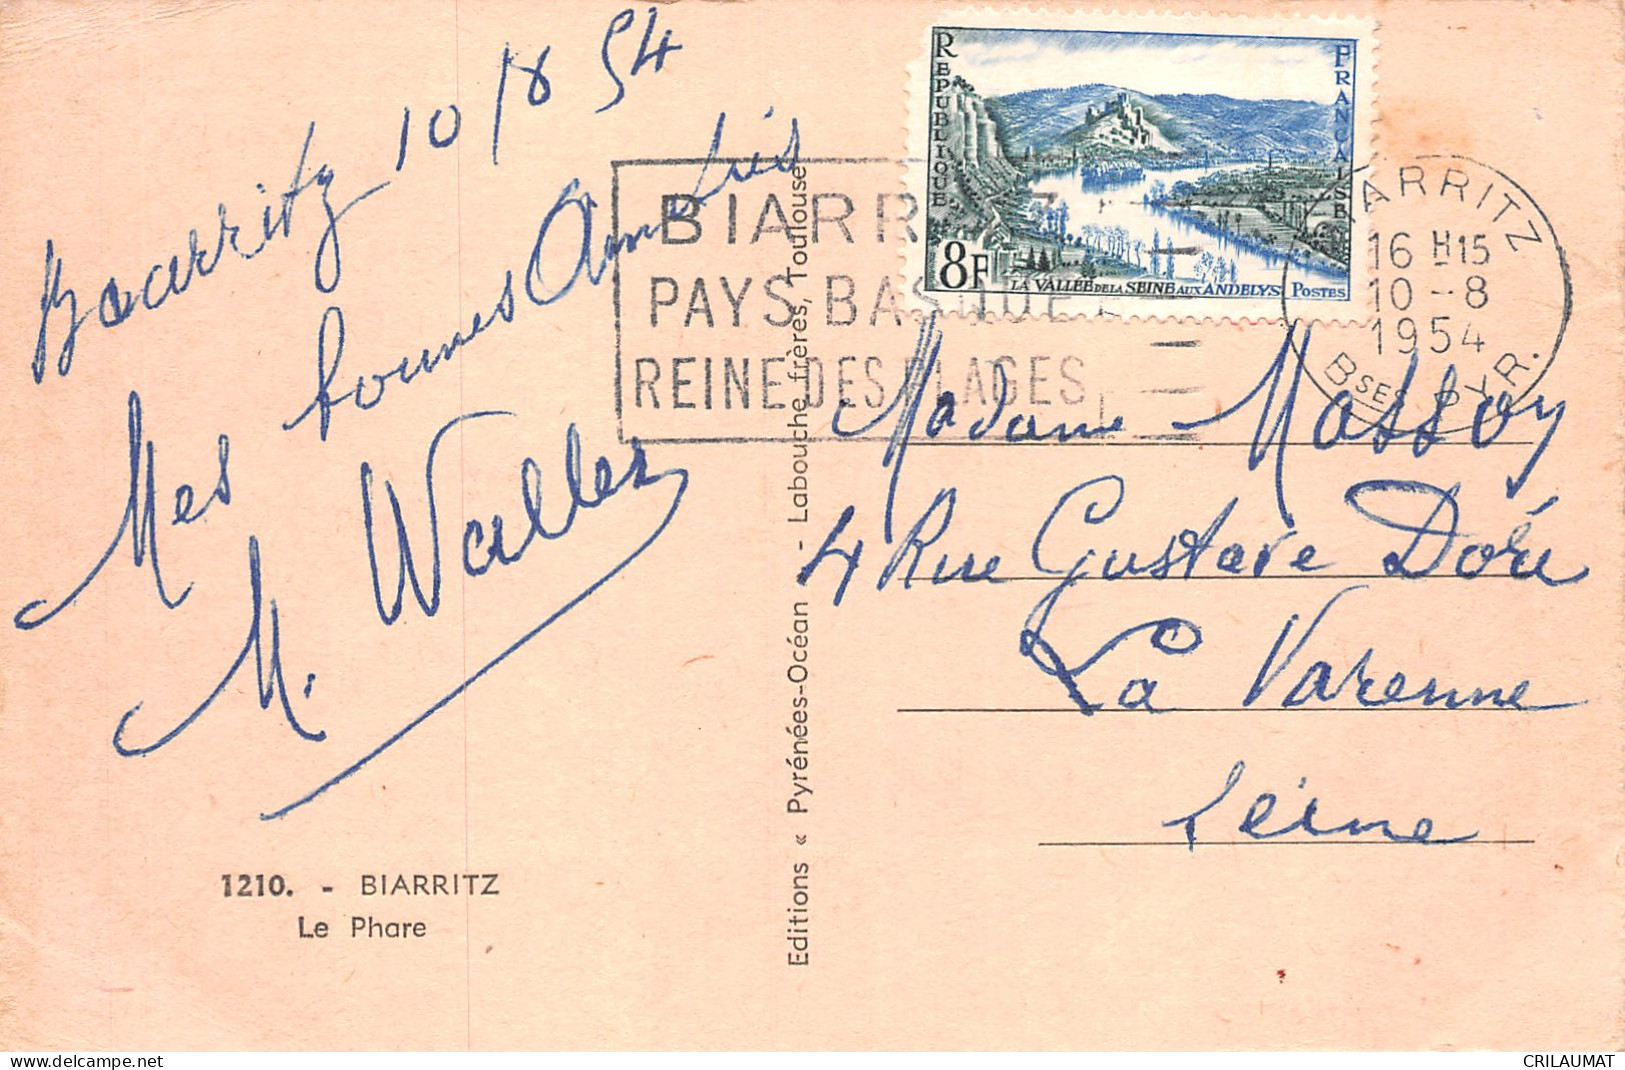 Biarritz 10/8 54
Mes bonnes Amitiés
M. Waller
1210. - BIARRITZ
Le Phare
Editions « Pyrénées-Océan » - Labouche frères, Toulouse
BIARRITZ
PAYS BASQUE
REINE DES PLAGES
REPUBLIQUE FRANÇAISE
8F
LA VALLEE DE LA SEINE AUX ANDELYS POSTES
BIARRITZ
16 H15
10 - 8
1954
BSES PYR.
Madame Massoy
4 Rue Gustave Doré
La Varenne
Seine
CRILAUMAT
delcampe.net